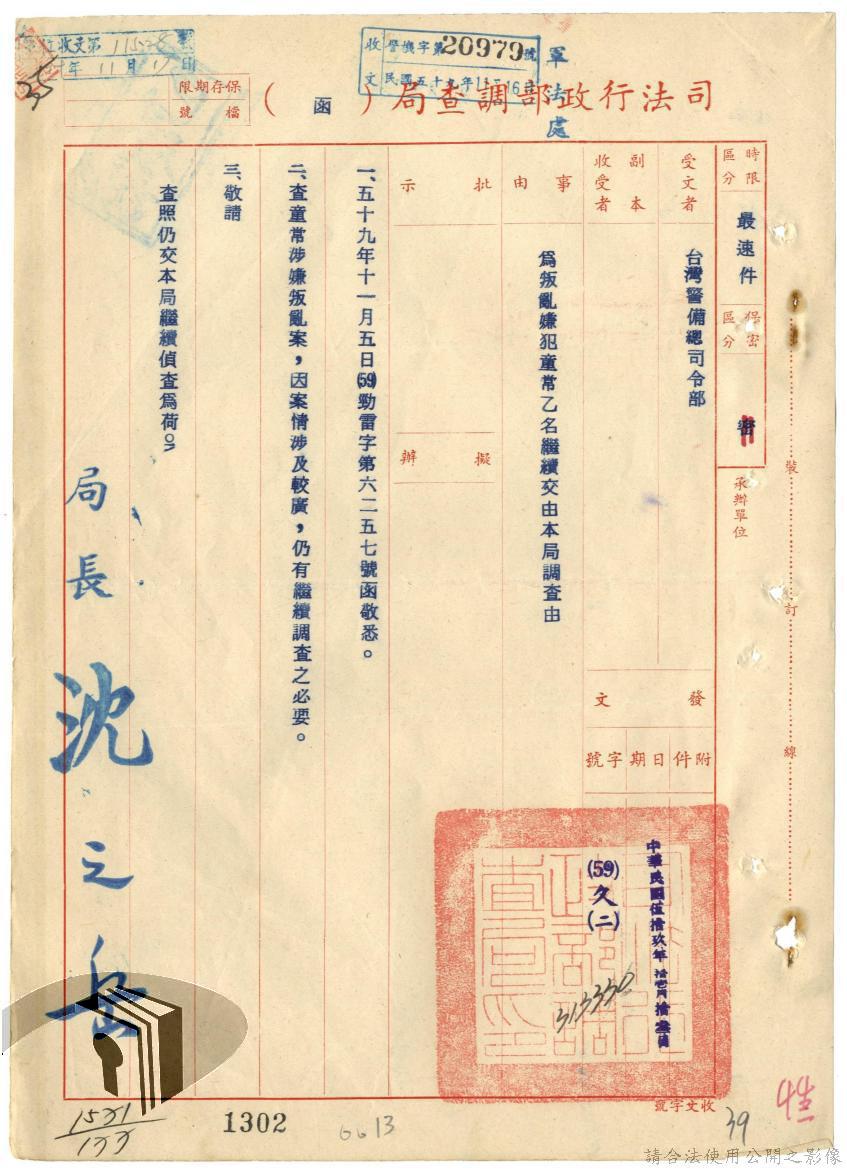 收文
警機字第20979號
民國五十九年11月16日
軍法處
收文第
11月
保存期限
檔號
司法行政部調查局（函）
時限區分
最速件
保密區分
密
承辦單位
受文者
台灣警備總司令部
副本收受者
發文
附件
日期
字號
中華民國伍拾玖年拾壹月拾叁日
(59)
(二)
313330
事由
為叛亂嫌犯童常乙名繼續交由本局調查由
批示
擬辦
一、五十九年十一月五日(59)勁雷字第六二五七號函敬悉。
二、查童常涉嫌叛亂案，因案情涉及較廣，仍有繼續調查之必要。
三、敬請
查照仍交本局繼續偵查為荷。
局長 沈之岳
裝
訂
線
收文字號
1302
6613
39
請合法使用公開之影像